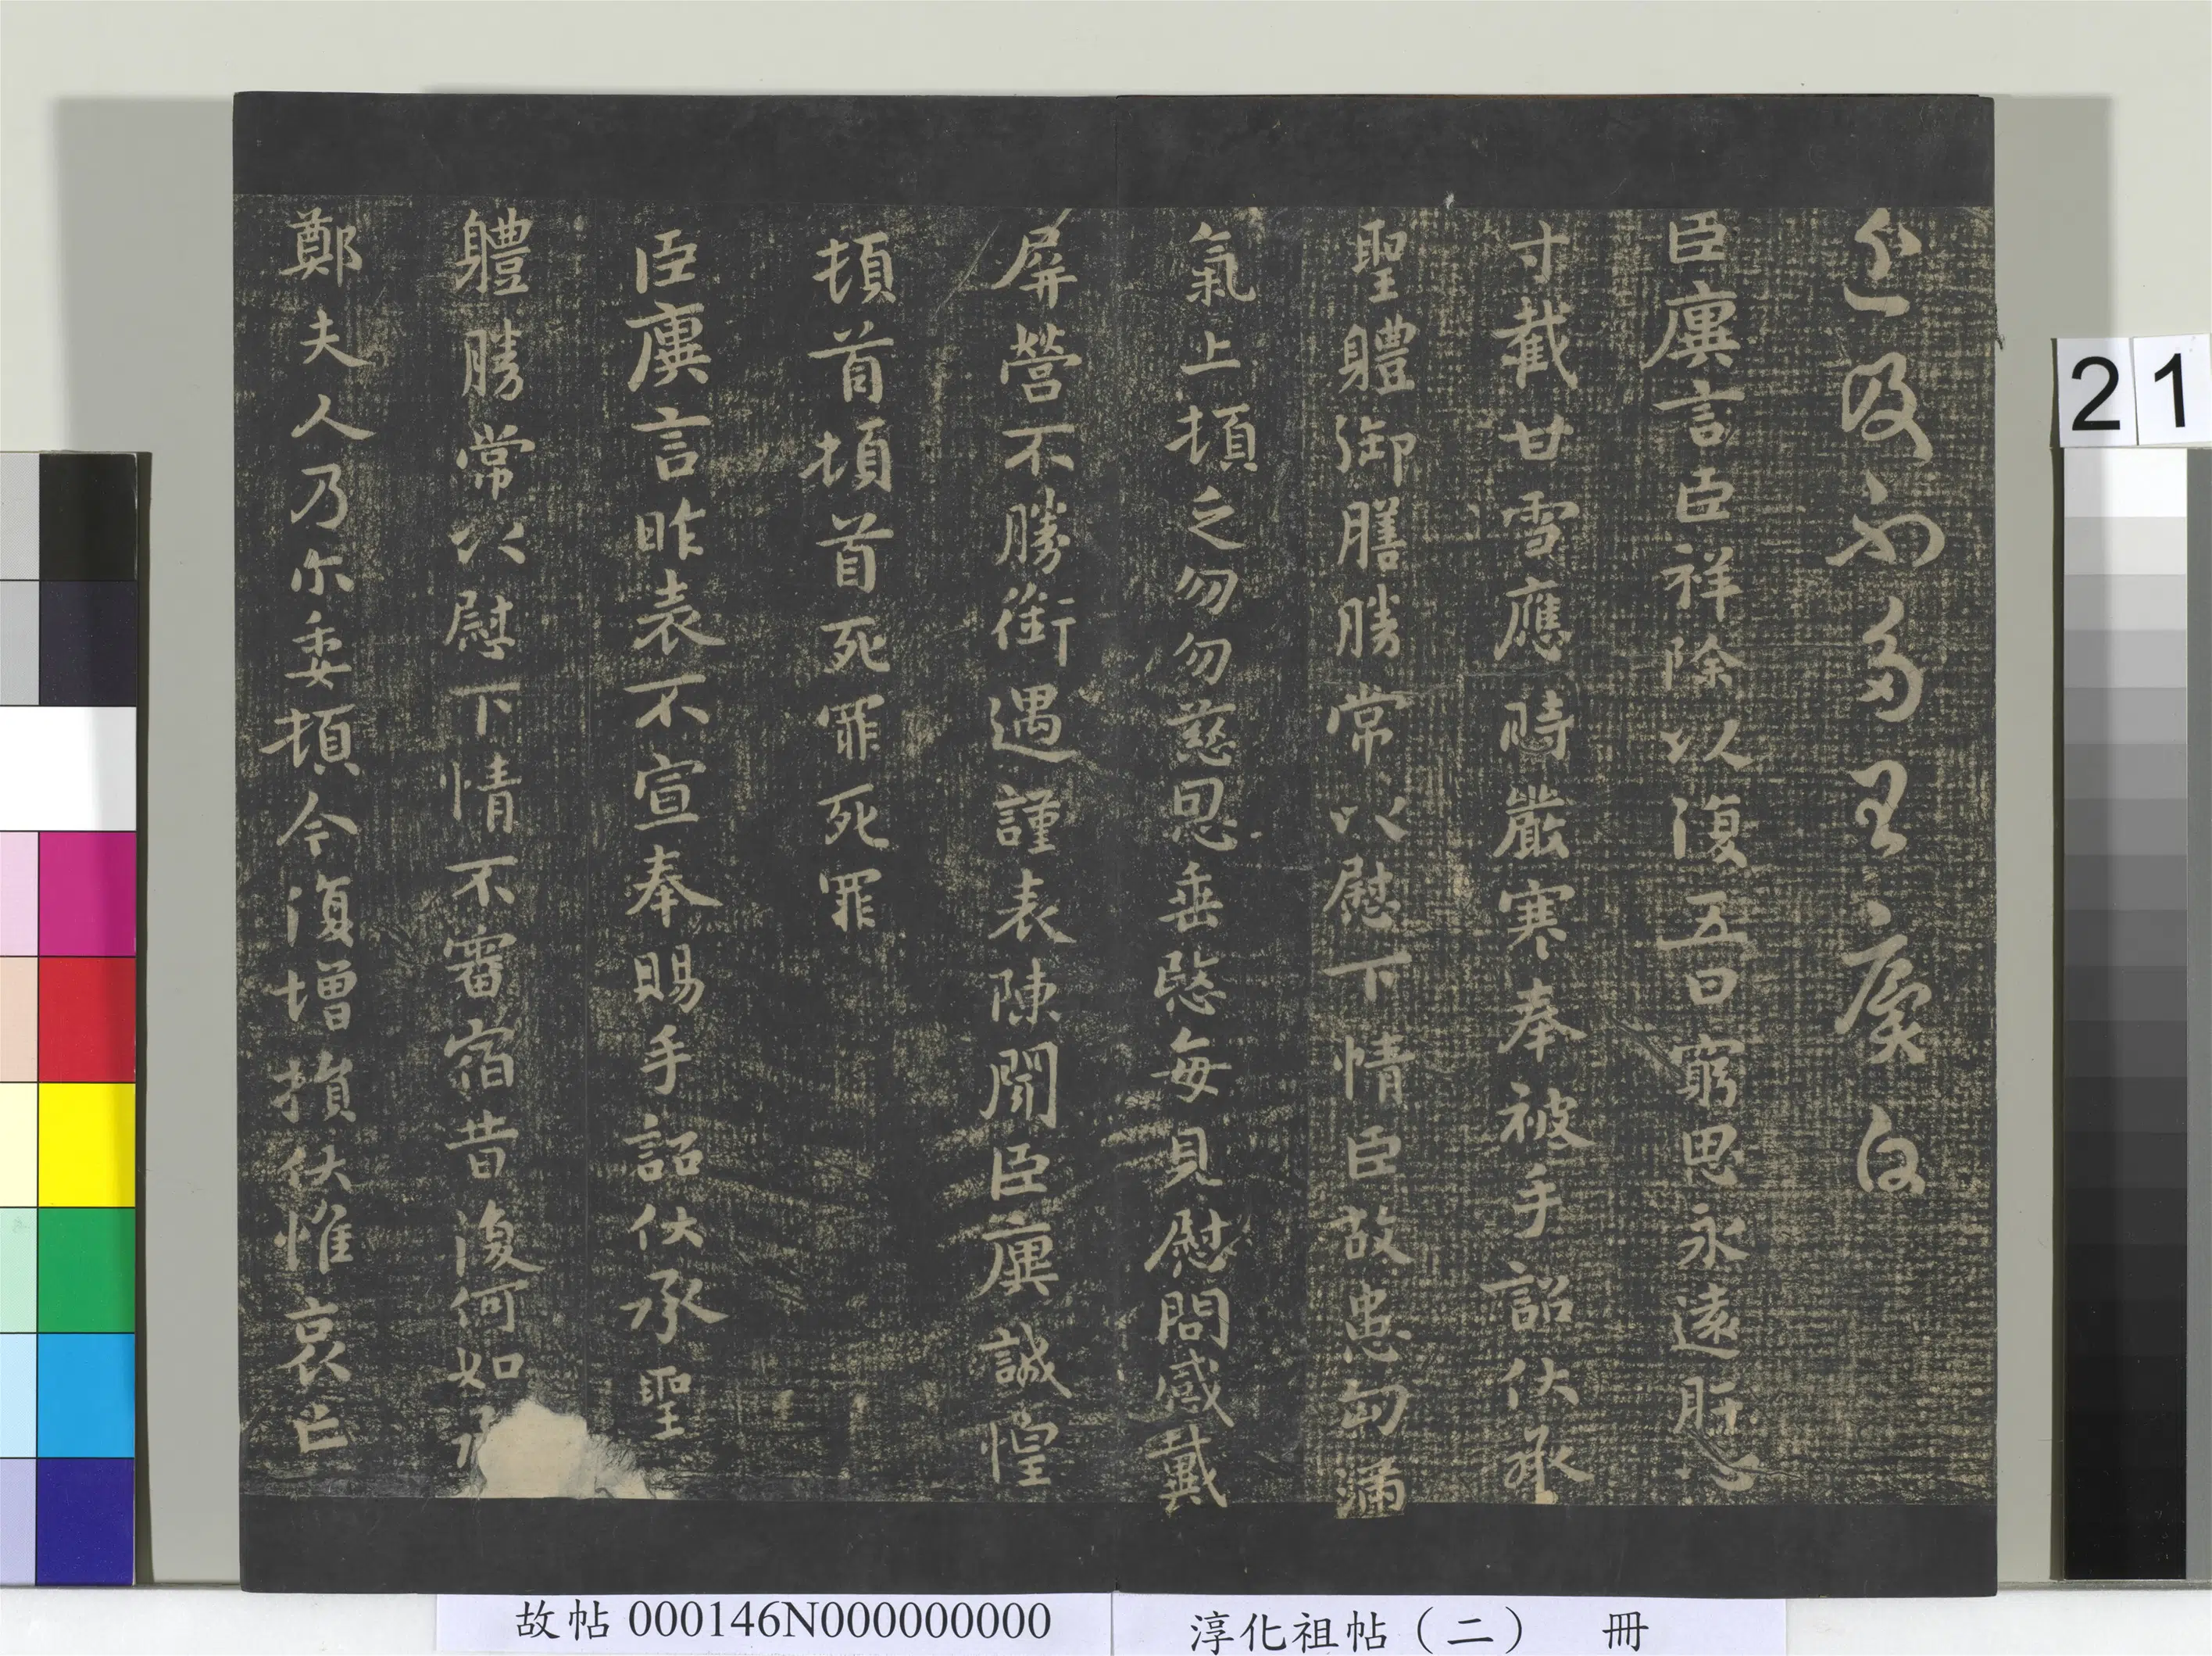 近及不多異廙白
臣廙言臣祥除以復五日窮思永遠肝心
寸截甘雪應時嚴寒奉被手詔伏承
聖體御膳勝常以慰下情臣故患匈滿
氣上頓乏勿勿慈恩垂愍每見慰問感戴
屏營不勝銜遇謹表陳聞臣廙誠惶
頓首頓首死罪死罪
臣廙言昨表不宣奉賜手詔伏承聖
體勝常以慰下情不審宿昔復何如承
鄭夫人乃尒委頓今復增損伏惟哀亡
21
故帖 000146N000000000
淳化祖帖（二） 冊